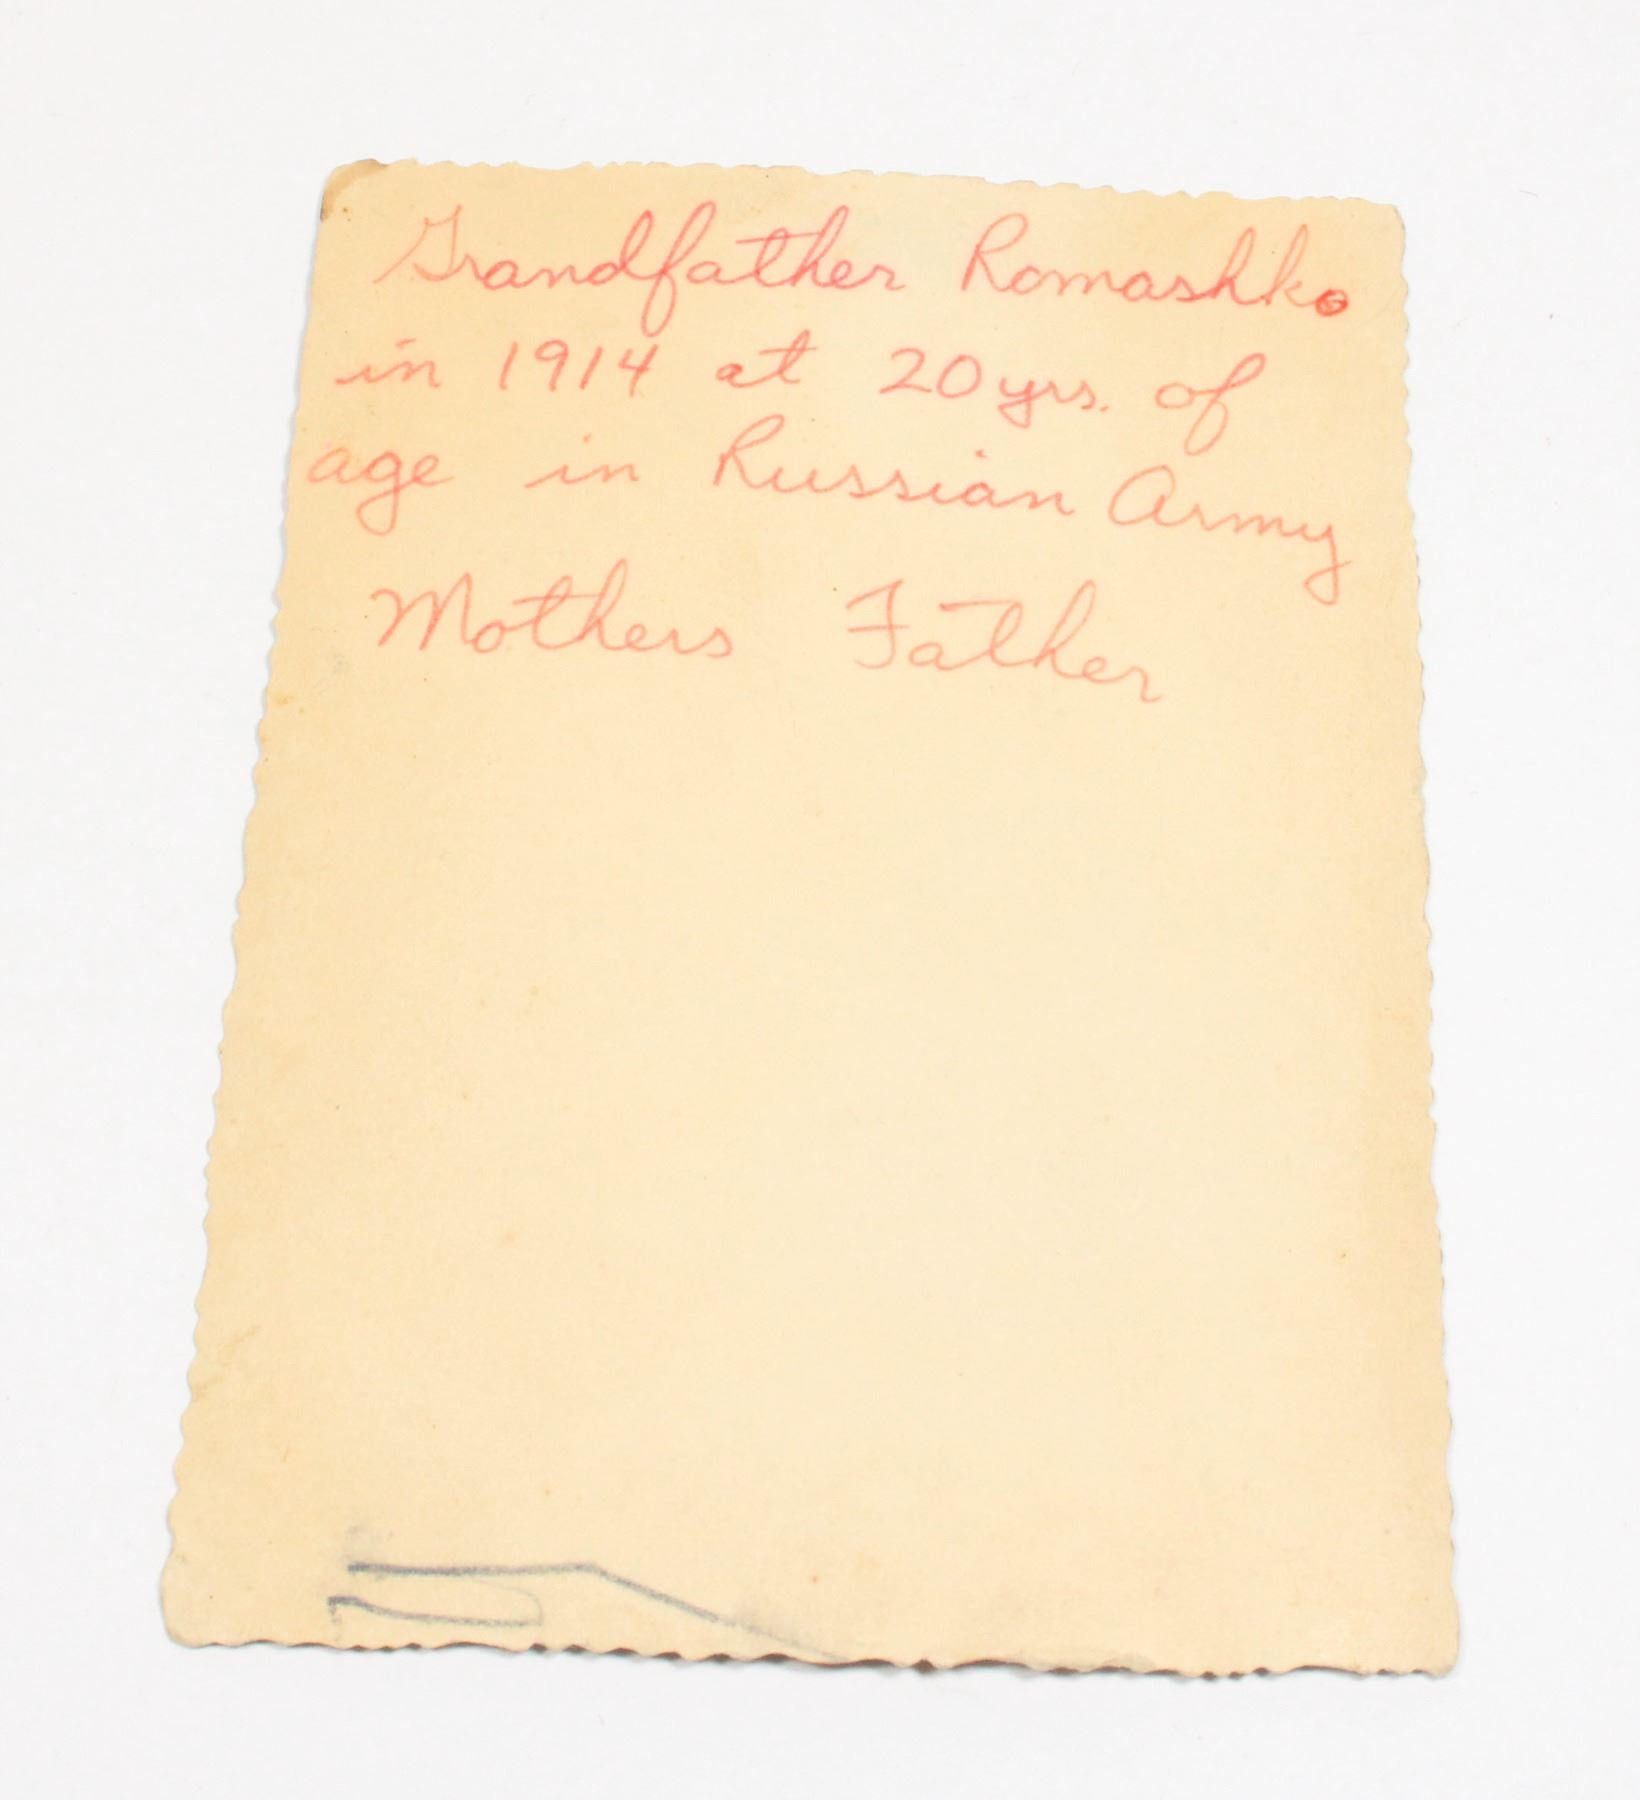 Grandfather Romashko
in 1914 at 20 yrs. of
age in Russian Army
Mothers Father